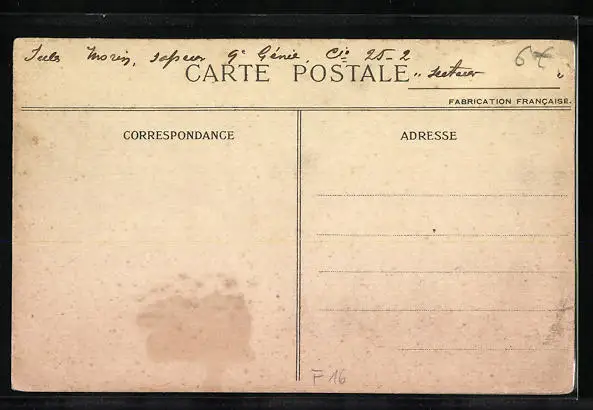 Jules Morin, sapeur 9e Génie, Cie 25-2
6€
CARTE POSTALE
" secteur "
FABRICATION FRANÇAISE.
CORRESPONDANCE
ADRESSE
F 16